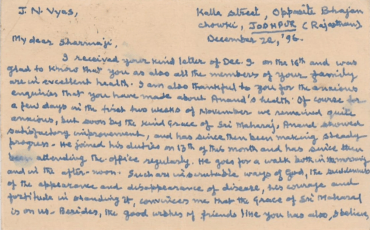 J. N. Vyas, Kalla Street, Opposite Bhajan
chowki, JODHPUR (Rajasthan)
December 22, '96.
My dear Sharmaji,
I received your kind letter of Dec. 9 on the 16th and was
glad to know that you as also all the members of your family
are in excellent health. I am also thankful to you for the anxious
enquiries that you have made about Anand's health. Of course for
a few days in the first two weeks of November we remained quite
anxious, but soon by the kind grace of Sri Maharaj, Anand showed
satisfactory improvement, and has since then been making steady
progress. He joined his duties on 13th of this month and has since then
been attending the office regularly. He goes for a walk both in the morning
and in the after-noon. Such are inscrutable ways of God, the suddenness
of the appearance and disappearance of disease, his courage and
fortitude in standing it, convinces me that the grace of Sri Maharaj
is on us. Besides, the good wishes of friends like you has also, I believe,